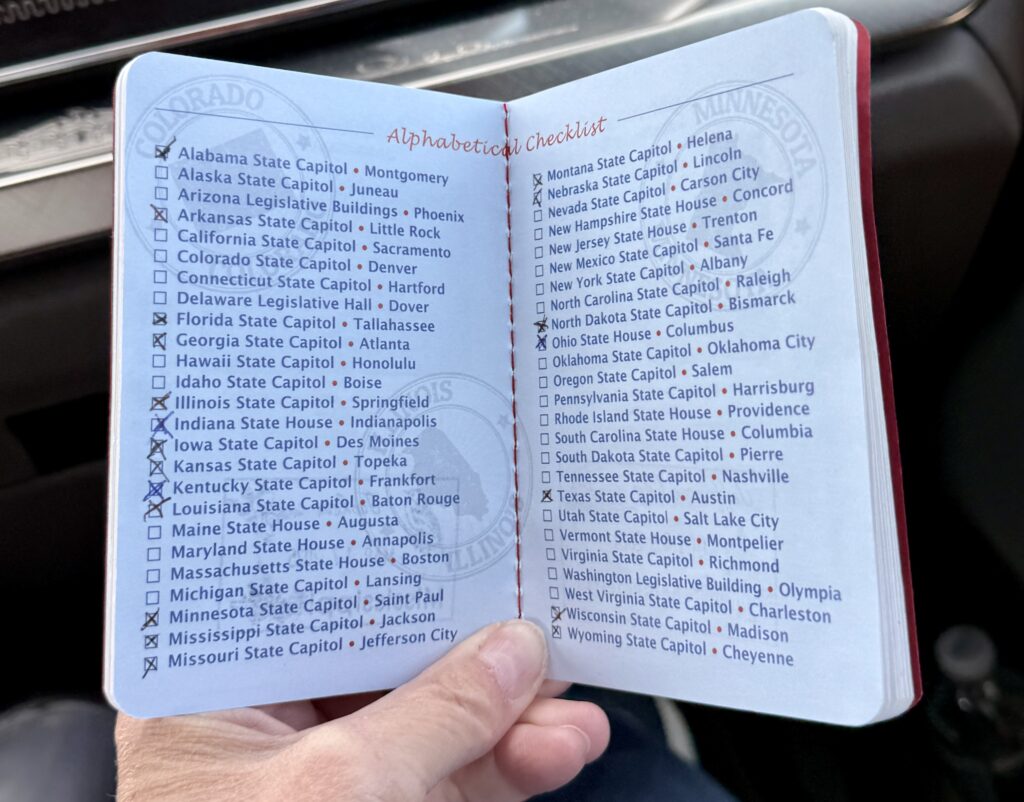 COLORADO
Alphabetical Checklist
Alabama State Capitol • Montgomery
Alaska State Capitol • Juneau
Arizona Legislative Buildings • Phoenix
Arkansas State Capitol • Little Rock
California State Capitol • Sacramento
Colorado State Capitol • Denver
Connecticut State Capitol • Hartford
Delaware Legislative Hall • Dover
Florida State Capitol • Tallahassee
Georgia State Capitol • Atlanta
Hawaii State Capitol • Honolulu
Idaho State Capitol • Boise
Illinois State Capitol • Springfield
Indiana State House • Indianapolis
Iowa State Capitol • Des Moines
Kansas State Capitol • Topeka
Kentucky State Capitol • Frankfort
Louisiana State Capitol • Baton Rouge
Maine State House • Augusta
Maryland State House • Annapolis
Massachusetts State House • Boston
Michigan State Capitol • Lansing
Minnesota State Capitol • Saint Paul
Mississippi State Capitol • Jackson
Missouri State Capitol • Jefferson City
ILLINOIS
ILLINOIS
MINNESOTA
Montana State Capitol • Helena
Nebraska State Capitol • Lincoln
Nevada State Capitol • Carson City
New Hampshire State House • Concord
New Jersey State House • Trenton
New Mexico State Capitol • Santa Fe
New York State Capitol • Albany
North Carolina State Capitol • Raleigh
North Dakota State Capitol • Bismarck
Ohio State House • Columbus
Oklahoma State Capitol • Oklahoma City
Oregon State Capitol • Salem
Pennsylvania State Capitol • Harrisburg
Rhode Island State House • Providence
South Carolina State House • Columbia
South Dakota State Capitol • Pierre
Tennessee State Capitol • Nashville
Texas State Capitol • Austin
Utah State Capitol • Salt Lake City
Vermont State House • Montpelier
Virginia State Capitol • Richmond
Washington Legislative Building • Olympia
West Virginia State Capitol • Charleston
Wisconsin State Capitol • Madison
Wyoming State Capitol • Cheyenne